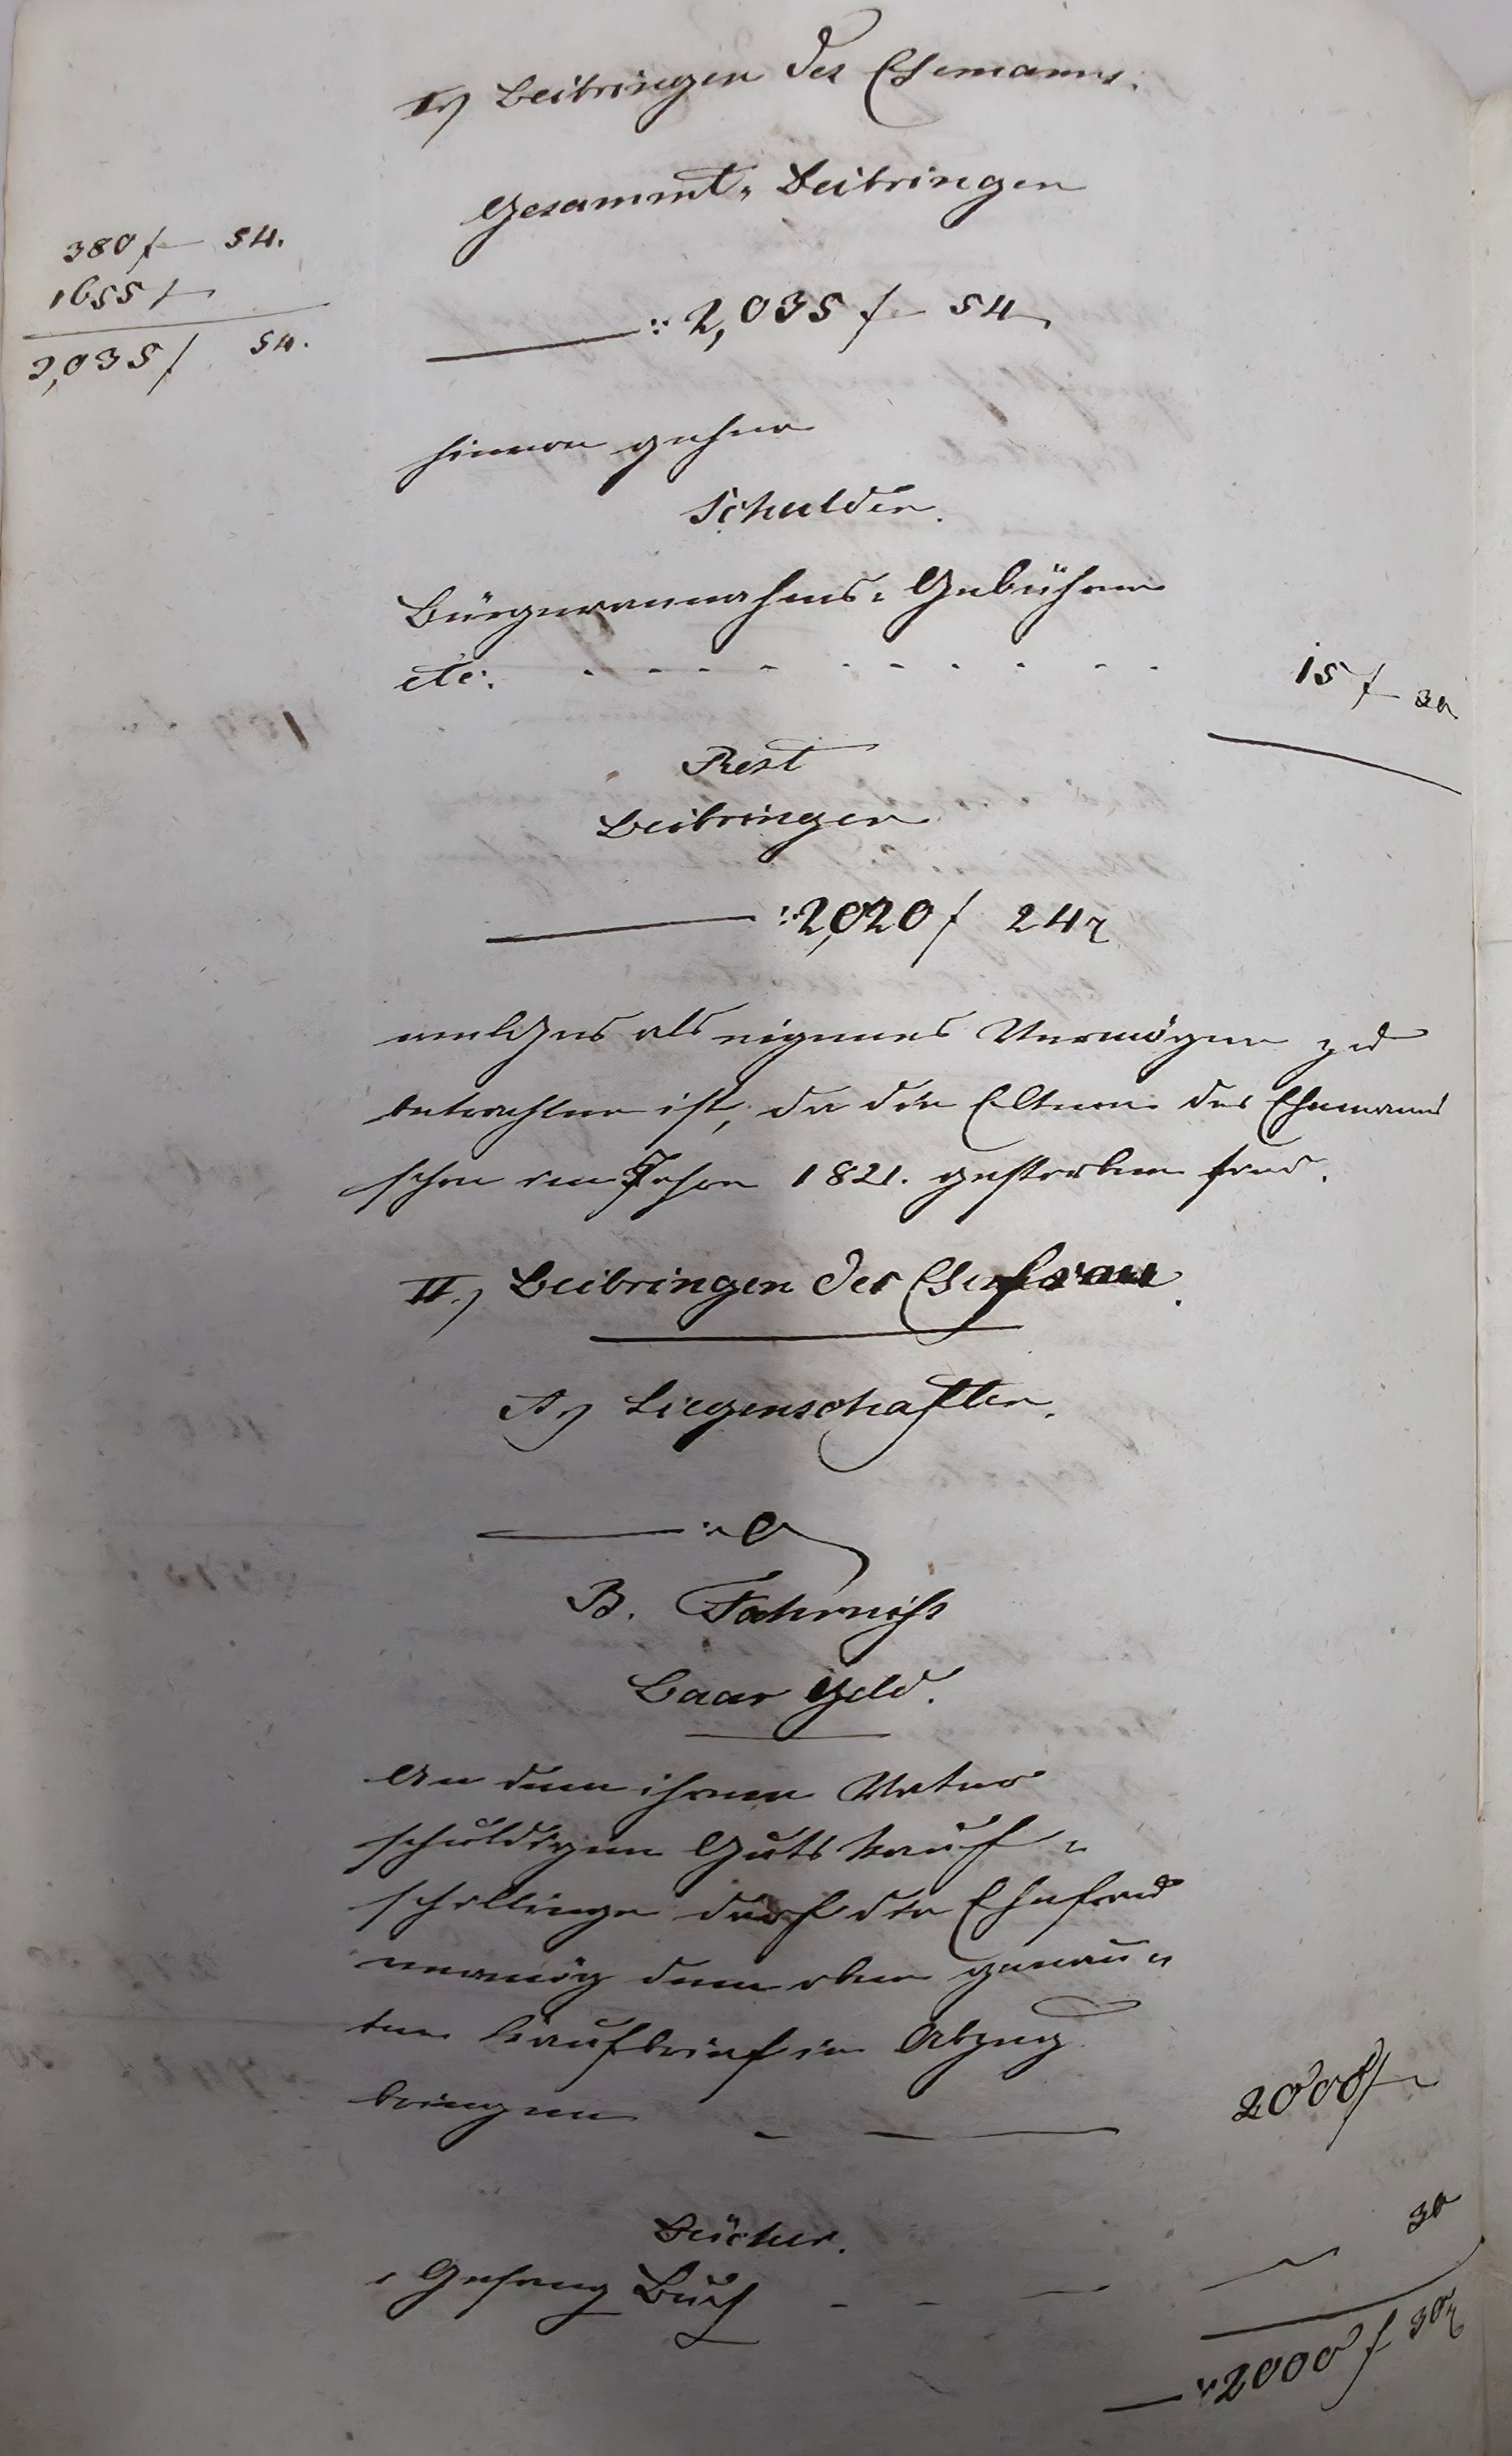 I.) Beibringen des Ehemanns.
Gesammt-Beibringen
380 f 54.
1655 f
2,035 f 54.
: 2,035 f 54
hievon gehen
Schulden.
Bürgerannahms-Gebühren
etc. - - - - - - - - - 15 f 30
Rest
Beibringen
: 2,020 f 24 x
welches als eigenes Vermögen zu
betrachten ist, da die Eltern des Ehemanns
schon im Jahre 1821. gestorben sind.
II.) Beibringen der Ehefrau.
A.) Liegenschaften.
: 0
B. Fahrniss
Baar Geld.
An dem ihrem Vater
schuldigen Guts Kauf-
schillinge darf die Ehefrau
vermög dem oben genann-
ten Kaufbrief in Abzug
bringen - — — 2000 f
Bücher.
1 Gesang Buch - - — — 30
: 2000 f 30 x